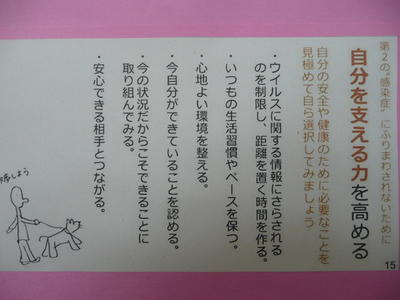 第2の“感染症”にふりまわされないために
自分を支える力を高める
自分の安全や健康のために必要なことを
見極めて自ら選択してみましょう
・ウイルスに関する情報にさらされる
のを制限し、距離を置く時間を作る。
・いつもの生活習慣やペースを保つ。
・心地よい環境を整える。
・今自分ができていることを認める。
・今の状況だからこそできることに
取り組んでみる。
・安心できる相手とつながる。
しよう
15